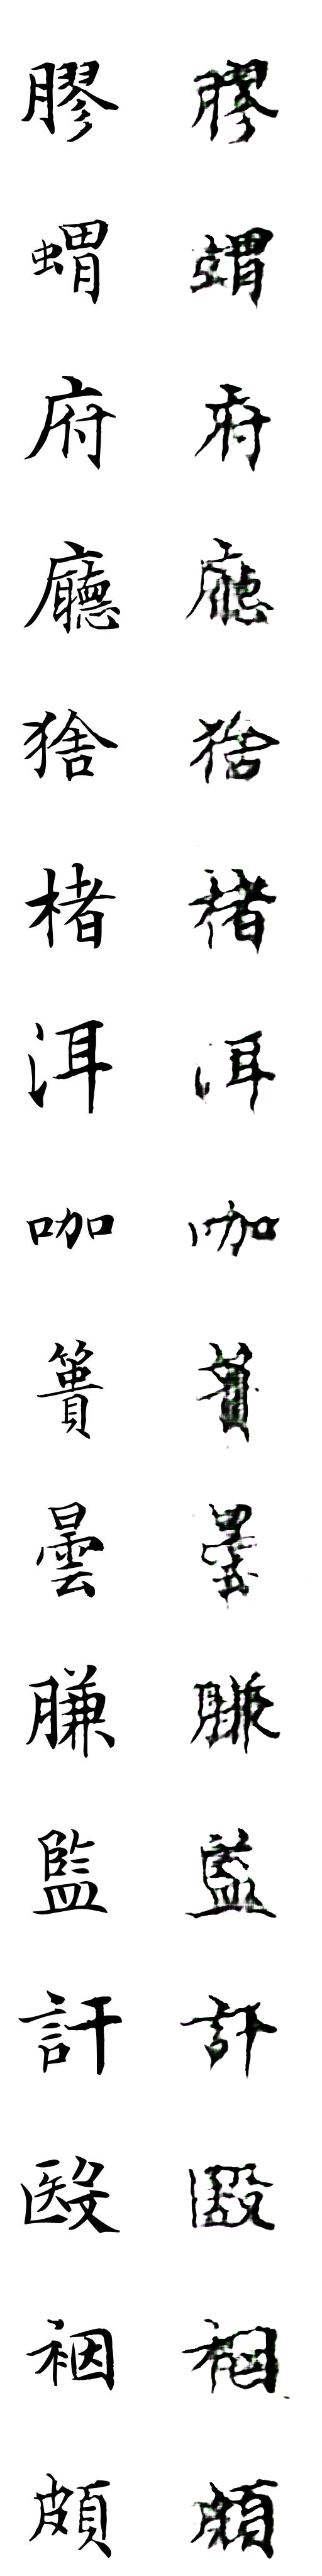 膠 膠
蝟 蝟
府 府
廳 廳
猞 猞
楮 楮
洱 洱
咖 咖
簣
曇 曇
膁 膁
監 監
訐 訐
毉
裀 裀
頗 頗